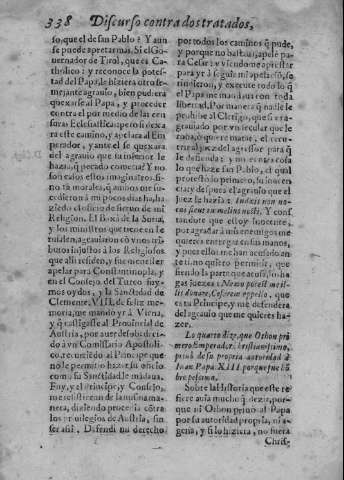 338 Discurso contra dos tratados,
so, que el de san Pablo? Y aun
se puede apretar mas. Si el Go-
uernador de Tirol, que es Ca-
tholico: y reconoce la potes-
tad del Papa, le hiziera otro se-
mejante agrauio, bien pudiera
quexarse al Papa, y proceder
contra el por medio de las cen-
suras Ecclesiasticas pero si dexa-
ra este camino, y apelara al Em-
perador, y ante el se quexara
del agrauio que tambien le
hazia, que pecado cometia? Y no
son casos estos imaginarios si-
no tã morales, q̃ ambos me su-
cedieron à mi pocos dias ha, ha-
ziẽdo el oficio de sieruo de mi
Religion. El Baxà de la Suria,
y los ministros que tienen en Ie-
rusalen, agrauiaron cõ vnos tri-
butos injustos à los Religiosos
que alli residen, y fue menester
apelar para Constantinopla, y
en el Consejo del Turco fuy-
mos oydos, y la Sanctidad de
Clemente VIII, de felize me-
moria, me mando yr à Viena,
y q̃ castigasse al Prouincial de
Austria, por auer desobedeci-
do à vn Comissario Apostoli-
co. recurriẽdo al Principe que
no le permitio hazer su oficio
como su Sanctidad le mãdaua.
Fuy, y el Principe, y Consejo,
me resistieron de la misma ma-
nera, diziendo procedia cõtra
los priuilegios de Austria, sin
ser assi. Defendi mi derecho
por todos los caminos q̃ pude,
y porque no bastaua, apele pa-
ra Cesar: y viendo me aprestar
para yr à seguir mi apelaciõ, se
rindieron, y execute todo lo q̃
el Papa me mandaua con toda
libertad. Por manera q̃ nadie le
prohibe al Clerigo, que si es a-
grauiado por vn secular que le
roba, ò quiere matar, el recur-
rir al juez del agressor para q̃
le defienda: y no es otra cosa
lo que haze san Pablo, el qual
protestò lo primero, su inocen-
cia: y despues el agrauio que el
juez le hazia: Iudæis non no-
cui, sicut tu melius nosti. Y cons-
tandote que estoy innocente,
por agradar à mis enemigos me
quieres entregar en sus manos,
y pues ellos me han acusado an-
te ti, no quiero permitir, que
siendo la parte que acusa, lo ha-
gas juezes: Nemo potest me il-
lis donare, Cæsarem appello, que
es tu Principe, y me defendera
del agrauio que me quieres ha-
zer.
Lo quarto dize, que Othon pri
mero Emperador, christianissimo,
priuò de su propria autoridad à
Iuan Papa XIII. porque fue hõ
bre pessimo.
Sobre la Historia que este re-
fiere auia mucho q̃ dezir, por-
que ni Othon priuò al Papa
por su autoridad propria, ni a-
gena, y si lo hiziera, no fuera
Chris-